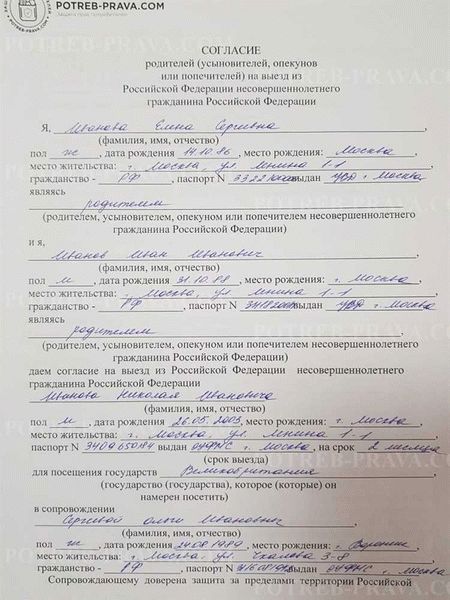 POTREB-PRAVA.COM
СОГЛАСИЕ
родителей (усыновителей, опекунов
или попечителей) на выезд из
Российской Федерации несовершеннолетнего
гражданина Российской Федерации
Я, Иванова Елена Сергивна,
(фамилия, имя, отчество)
пол ж, дата рождения 14.10.86, место рождения: Москва,
место жительства: г. Москва, ул. Ленина 1-1
гражданство - РФ, паспорт N выдан УВД г. Москва,
являясь
родителем
(родителем, усыновителем, опекуном или попечителем несовершеннолетнего
гражданина Российской Федерации)
и я,
Иванов Иван Иванович,
(фамилия, имя, отчество)
пол м, дата рождения 31.10.88, место рождения: г. Москва,
место жительства: г. Москва, ул Ленина 1-1
гражданство - РФ, паспорт N выдан УВД г. Москва,
являясь
родителем
(родителем, усыновителем, опекуном или попечителем несовершеннолетнего
гражданина Российской Федерации)
даем согласие на выезд из Российской Федерации несовершеннолетнего
гражданина Российской Федерации
Иванова Николая Ивановича
(фамилия, имя, отчество)
пол м, дата рождения 26.05.2005, место рождения: г. Москва,
место жительства: г. Москва, ул. Ленина 1-1
паспорт N выдан ОУФМС г. Москва, на срок 2 месяца
(срок выезда)
для посещения государств Великобритания
(государство (государства), которое (которые) он
намерен посетить)
в сопровождении
Сергеевой Ольги Иванович,
(фамилия, имя, отчество)
пол ж, дата рождения 24.08.1989, место рождения: г. Воронеж,
место жительства: г. Москва, ул. Чкалова 3-8
гражданство - РФ, паспорт N выдан ОУФМС г. Москва
Сопровождающему доверена защита за пределами территории Российской